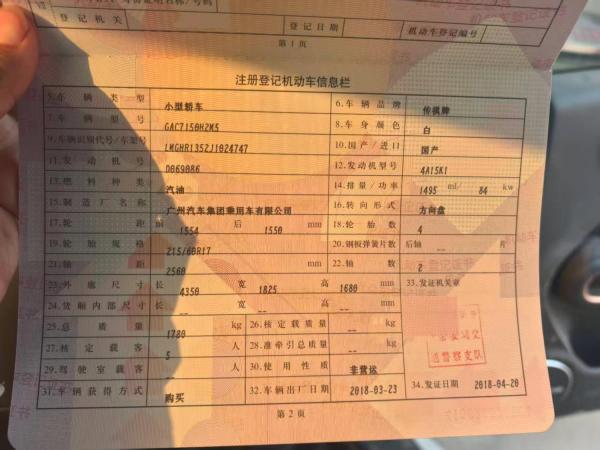 登记机关 登记日期 机动车登记编号
第1页
注册登记机动车信息栏
5.车辆类型 小型轿车 6.车辆品牌 传祺牌
7.车辆型号 GAC7150H2M5 8.车身颜色 白
9.车辆识别代号/车架号 LMGHR1352J1024747 10.国产/进口 国产
11.发动机号 D069086 12.发动机型号 4A15K1
13.燃料种类 汽油 14.排量/功率 1495 ml/ 84 kw
15.制造厂名称 广州汽车集团乘用车有限公司 16.转向形式 方向盘
17.轮距 前 1554 后 1550 mm 18.轮胎数 4
19.轮胎规格 215/60R17 20.钢板弹簧片数 后轴 -- 片
21.轴距 2560 mm 22.轴数 2
23.外廓尺寸 长 4350 宽 1825 高 1680 mm 33.发证机关章
24.货厢内部尺寸 长 -- 宽 -- 高 -- mm
25.总质量 1780 kg 26.核定载质量 -- kg
27.核定载客 5 人 28.准牵引总质量 -- kg
29.驾驶室载客 -- 人 30.使用性质 非营运
31.车辆获得方式 购买 32.车辆出厂日期 2018-03-23 34.发证日期 2018-04-20
通警察支队
第2页